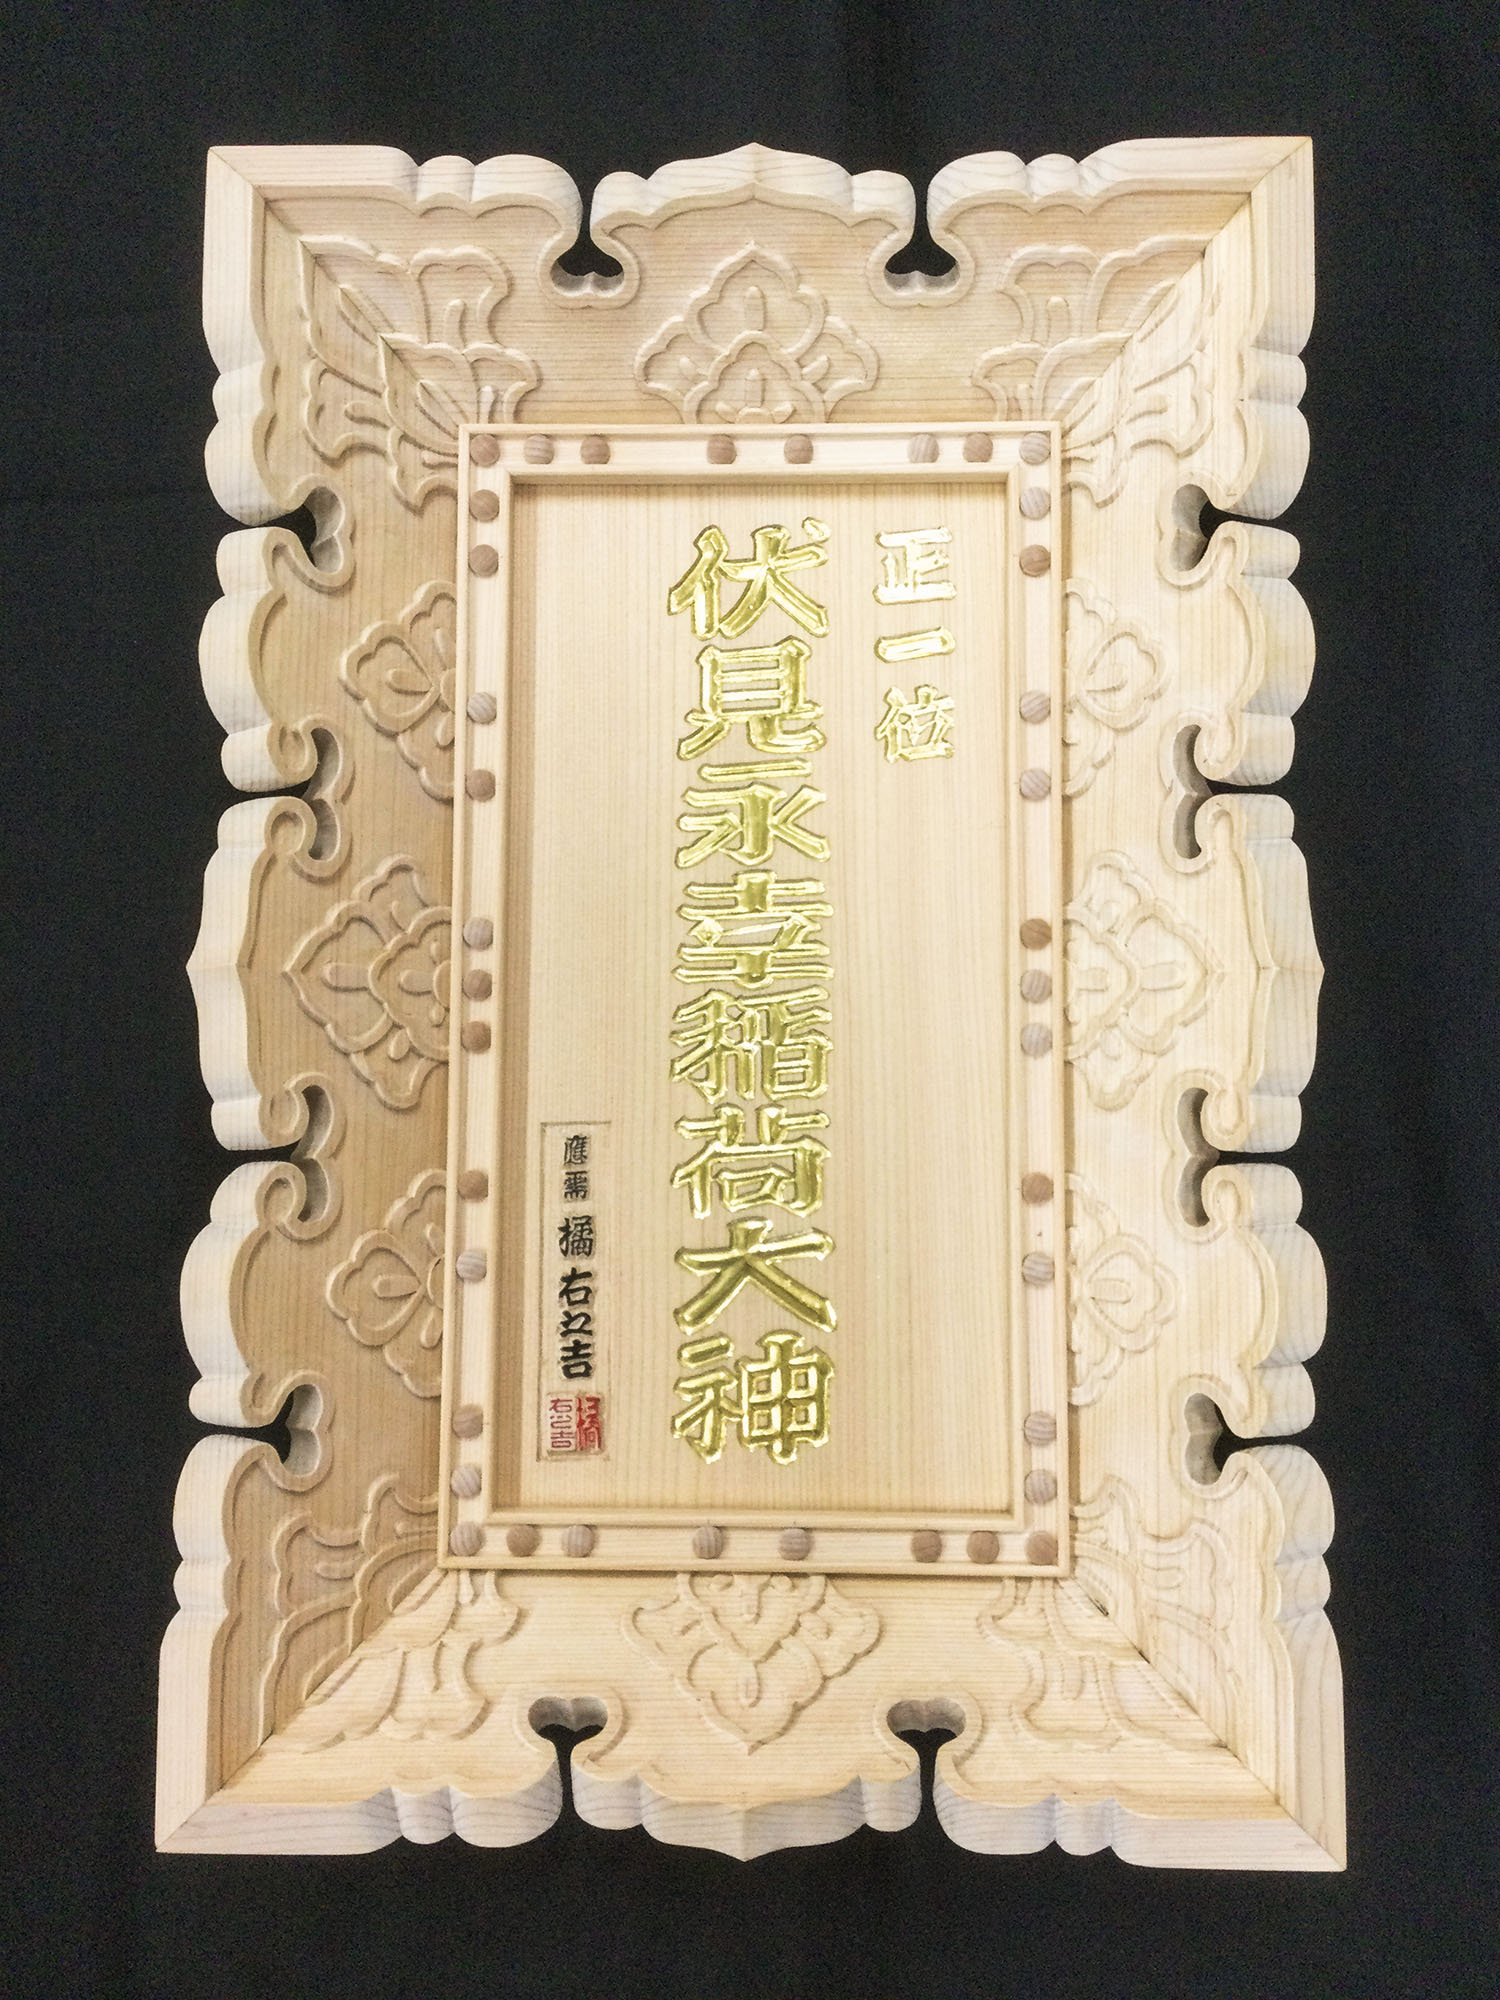 正一位
伏見永幸稲荷大神
應需 橘右之吉
右之吉